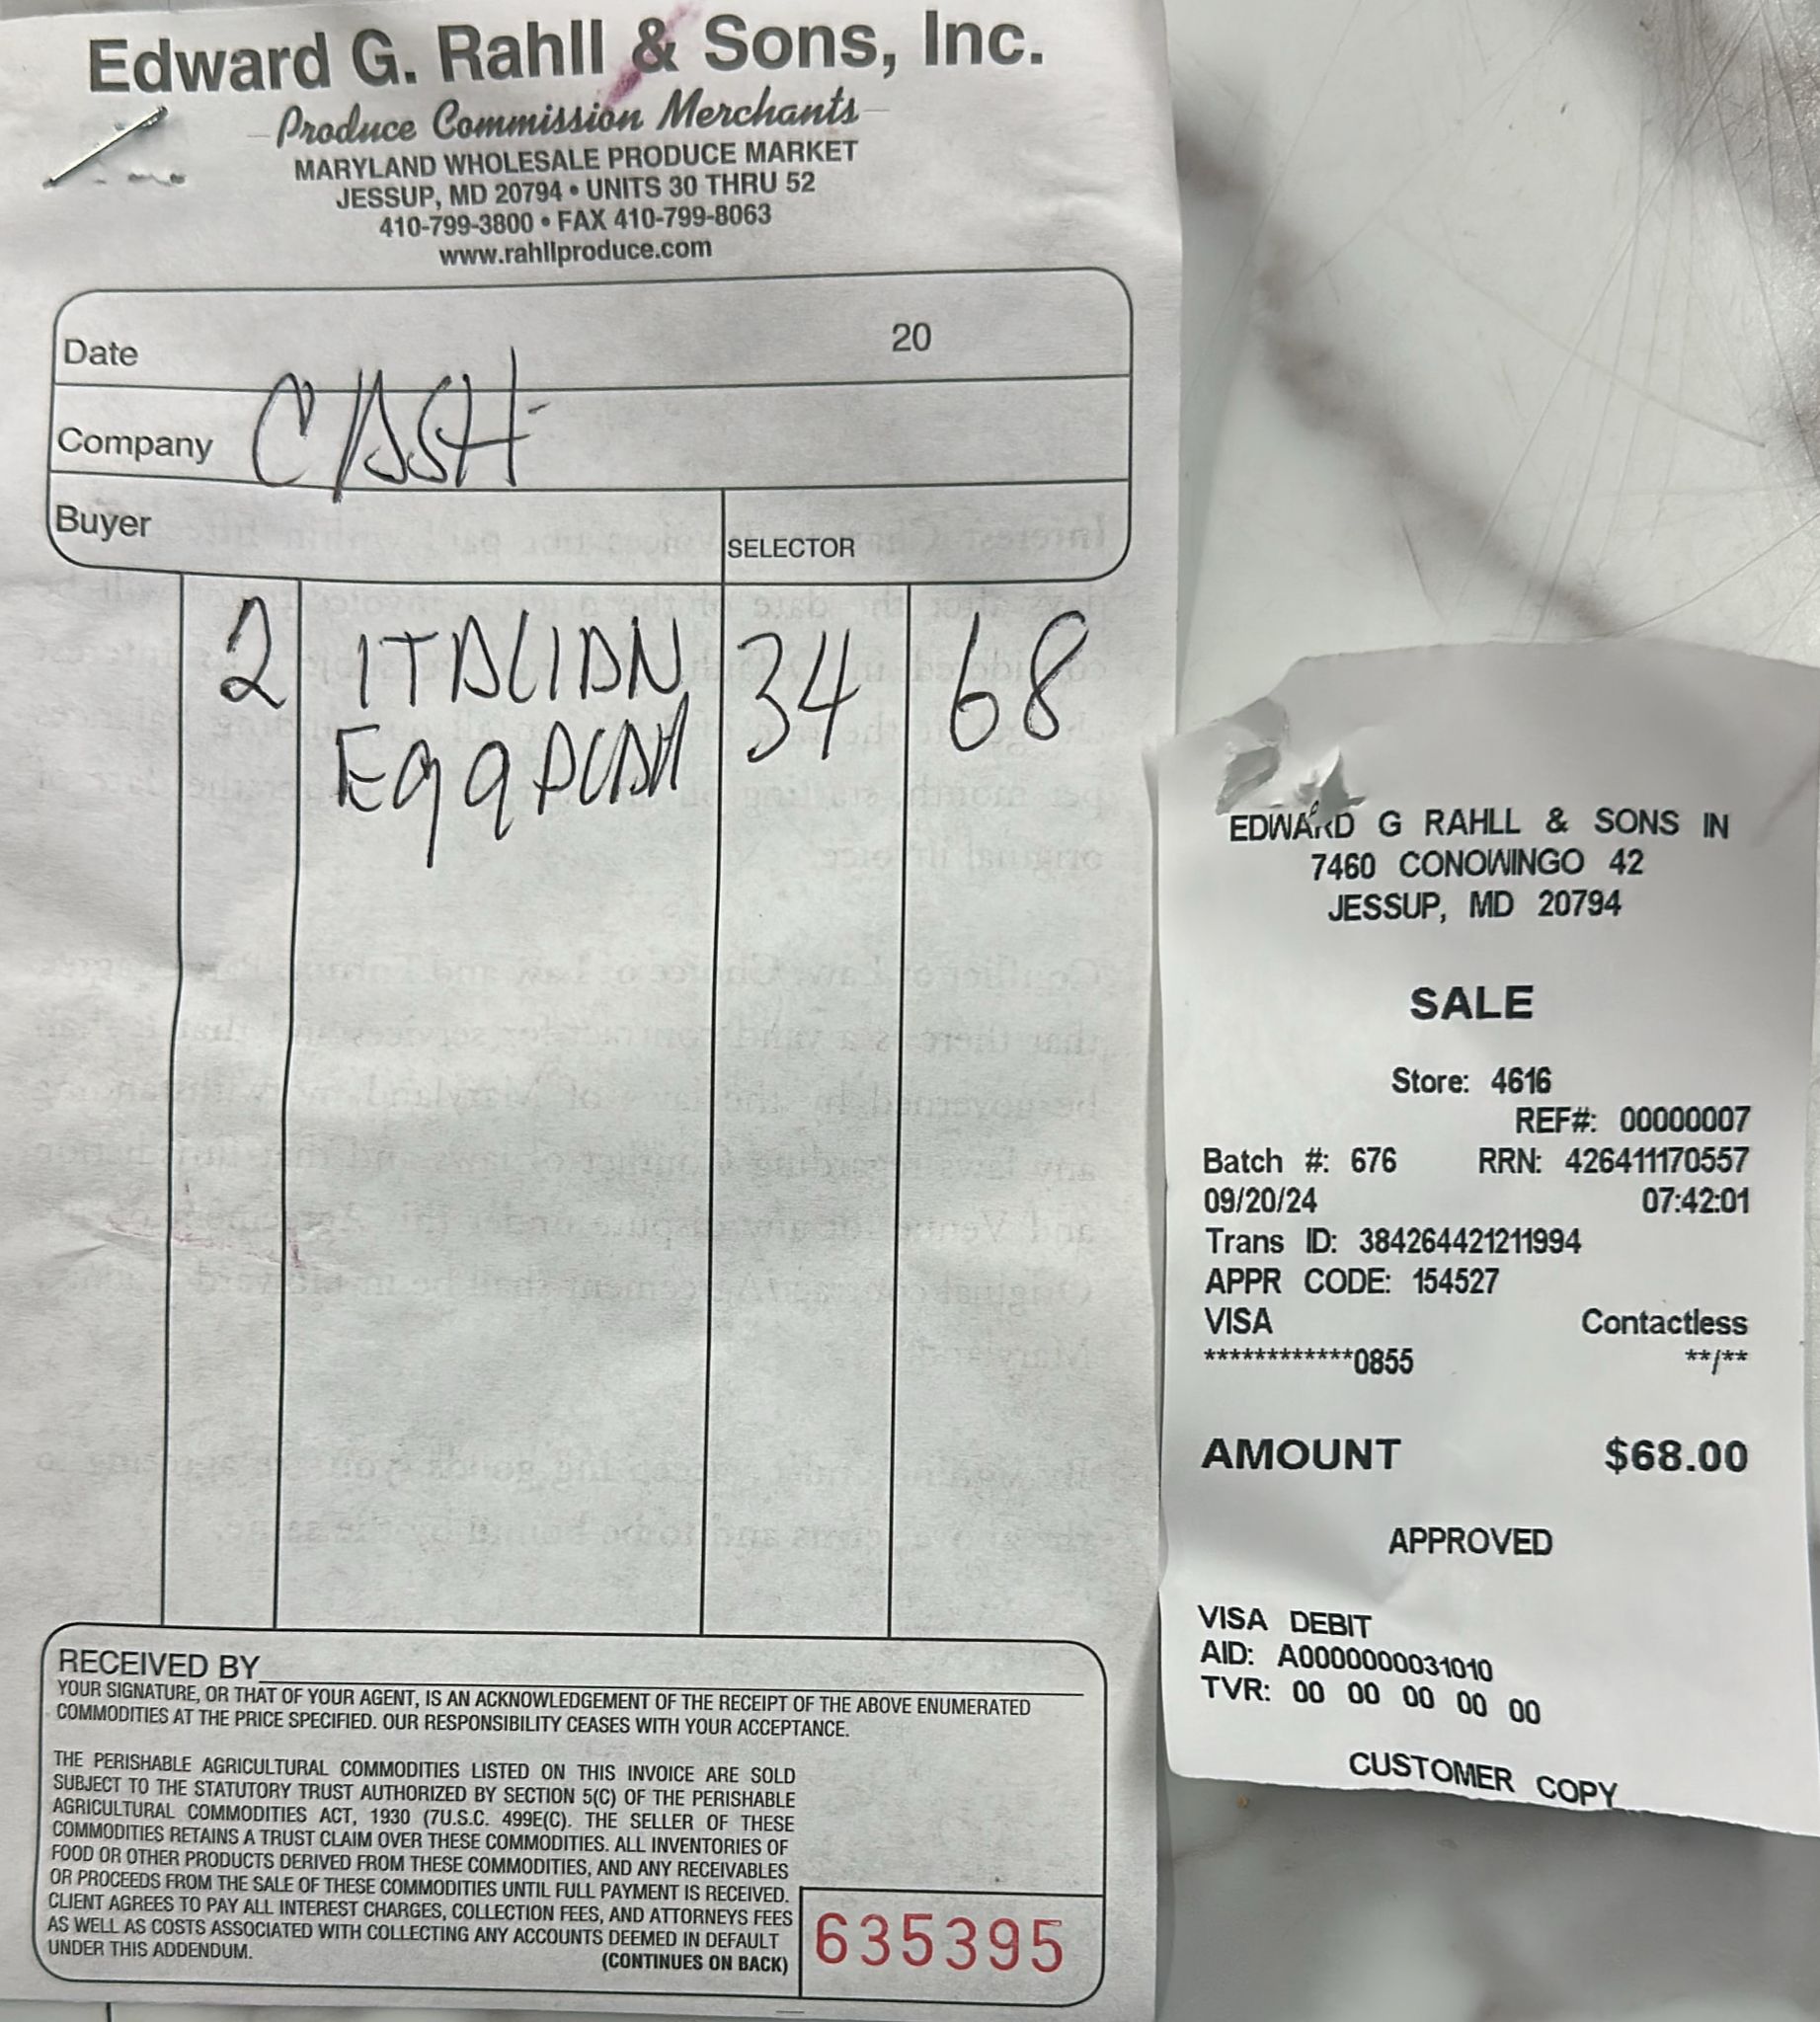 Edward G. Rahll & Sons, Inc.
Produce Commission Merchants
MARYLAND WHOLESALE PRODUCE MARKET
JESSUP, MD 20794 • UNITS 30 THRU 52
410-799-3800 • FAX 410-799-8063
www.rahllproduce.com
Date 20
Company CASH
Buyer
SELECTOR
2 ITALIAN 34 68
Eggplant
RECEIVED BY
YOUR SIGNATURE, OR THAT OF YOUR AGENT, IS AN ACKNOWLEDGEMENT OF THE RECEIPT OF THE ABOVE ENUMERATED
COMMODITIES AT THE PRICE SPECIFIED. OUR RESPONSIBILITY CEASES WITH YOUR ACCEPTANCE.
THE PERISHABLE AGRICULTURAL COMMODITIES LISTED ON THIS INVOICE ARE SOLD
SUBJECT TO THE STATUTORY TRUST AUTHORIZED BY SECTION 5(C) OF THE PERISHABLE
AGRICULTURAL COMMODITIES ACT, 1930 (7U.S.C. 499E(C). THE SELLER OF THESE
COMMODITIES RETAINS A TRUST CLAIM OVER THESE COMMODITIES. ALL INVENTORIES OF
FOOD OR OTHER PRODUCTS DERIVED FROM THESE COMMODITIES, AND ANY RECEIVABLES
OR PROCEEDS FROM THE SALE OF THESE COMMODITIES UNTIL FULL PAYMENT IS RECEIVED.
CLIENT AGREES TO PAY ALL INTEREST CHARGES, COLLECTION FEES, AND ATTORNEYS FEES
AS WELL AS COSTS ASSOCIATED WITH COLLECTING ANY ACCOUNTS DEEMED IN DEFAULT
UNDER THIS ADDENDUM. (CONTINUES ON BACK)
635395
EDWARD G RAHLL & SONS IN
7460 CONOWINGO 42
JESSUP, MD 20794
SALE
Store: 4616
REF#: 00000007
Batch #: 676 RRN: 426411170557
09/20/24 07:42:01
Trans ID: 384264421211994
APPR CODE: 154527
VISA Contactless
************0855 **/**
AMOUNT $68.00
APPROVED
VISA DEBIT
AID: A0000000031010
TVR: 00 00 00 00 00
CUSTOMER COPY